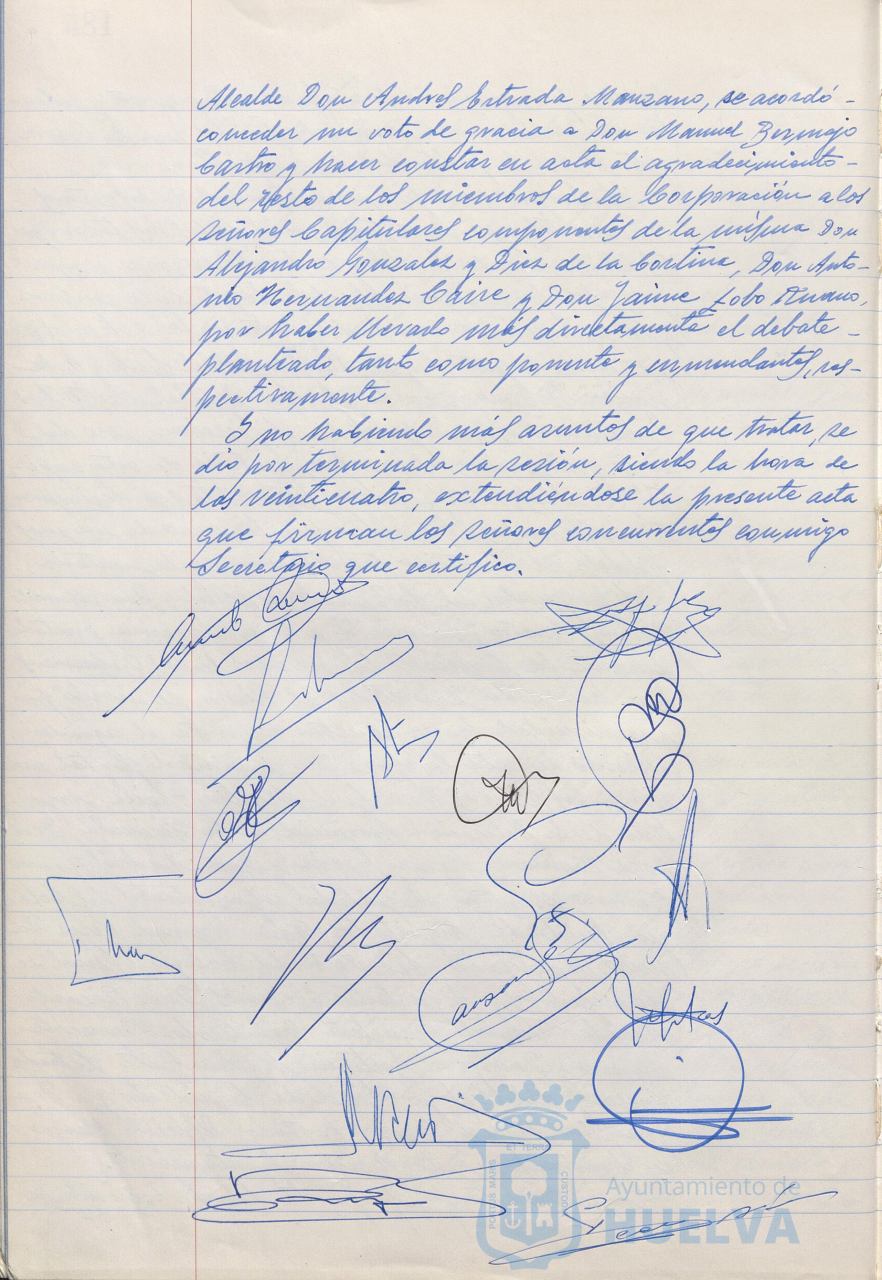 Alcalde Don Andres Estrada Manzano, se acordó -
conceder un voto de gracia a Don Manuel Bermejo
Castro y hacer constar en acta el agradecimiento -
del resto de los miembros de la Corporación a los
Señores Capitulares componentes de la misma Don
Alejandro Gonzalez y Diez de la Cortina, Don Anto-
nio Hernandez Caire y Don Jaime Lobo
por haber llevado más directamente el debate -
planteado, tanto como ponente y enmendantes, res-
pectivamente.
Y no habiendo más asuntos de que tratar, se
dio por terminada la sesión, siendo la hora de
las veinticuatro, extendiéndose la presente acta
que firman los señores concurrentes conmigo
Secretario que certifico.
PORTUS MARIS ET TERRAE CUSTODIA
Ayuntamiento de
HUELVA